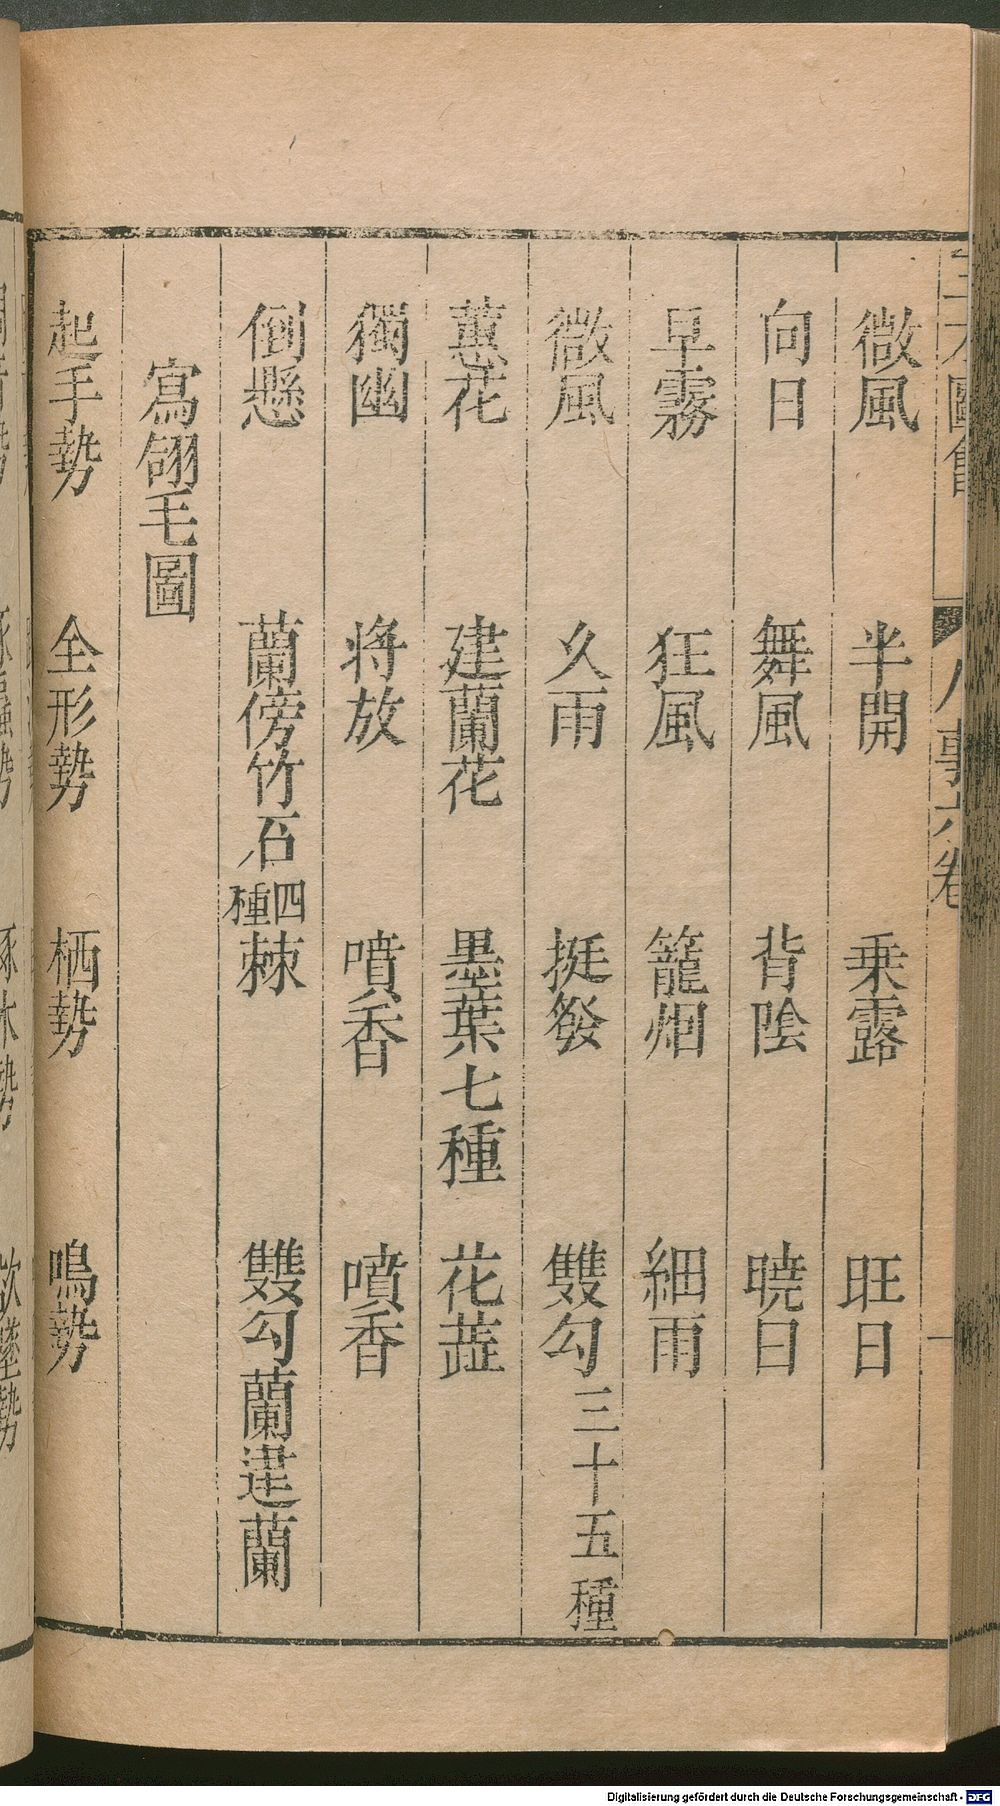 三才圖會 人事六卷 一
微風 半開 乗露 旺日
向日 舞風 背陰 曉日
早霧 狂風 籠烟 細雨
微風 久雨 挺發 雙勾三十五種
蕙花 建蘭花 墨葉七種 花蕋
獨幽 將放 噴香 噴香
倒懸 蘭傍竹石四種 棘 雙勾蘭建蘭
寫翎毛圖
起手勢 全形勢 栖勢 鳴勢
Digitalisierung gefördert durch die Deutsche Forschungsgemeinschaft - DFG